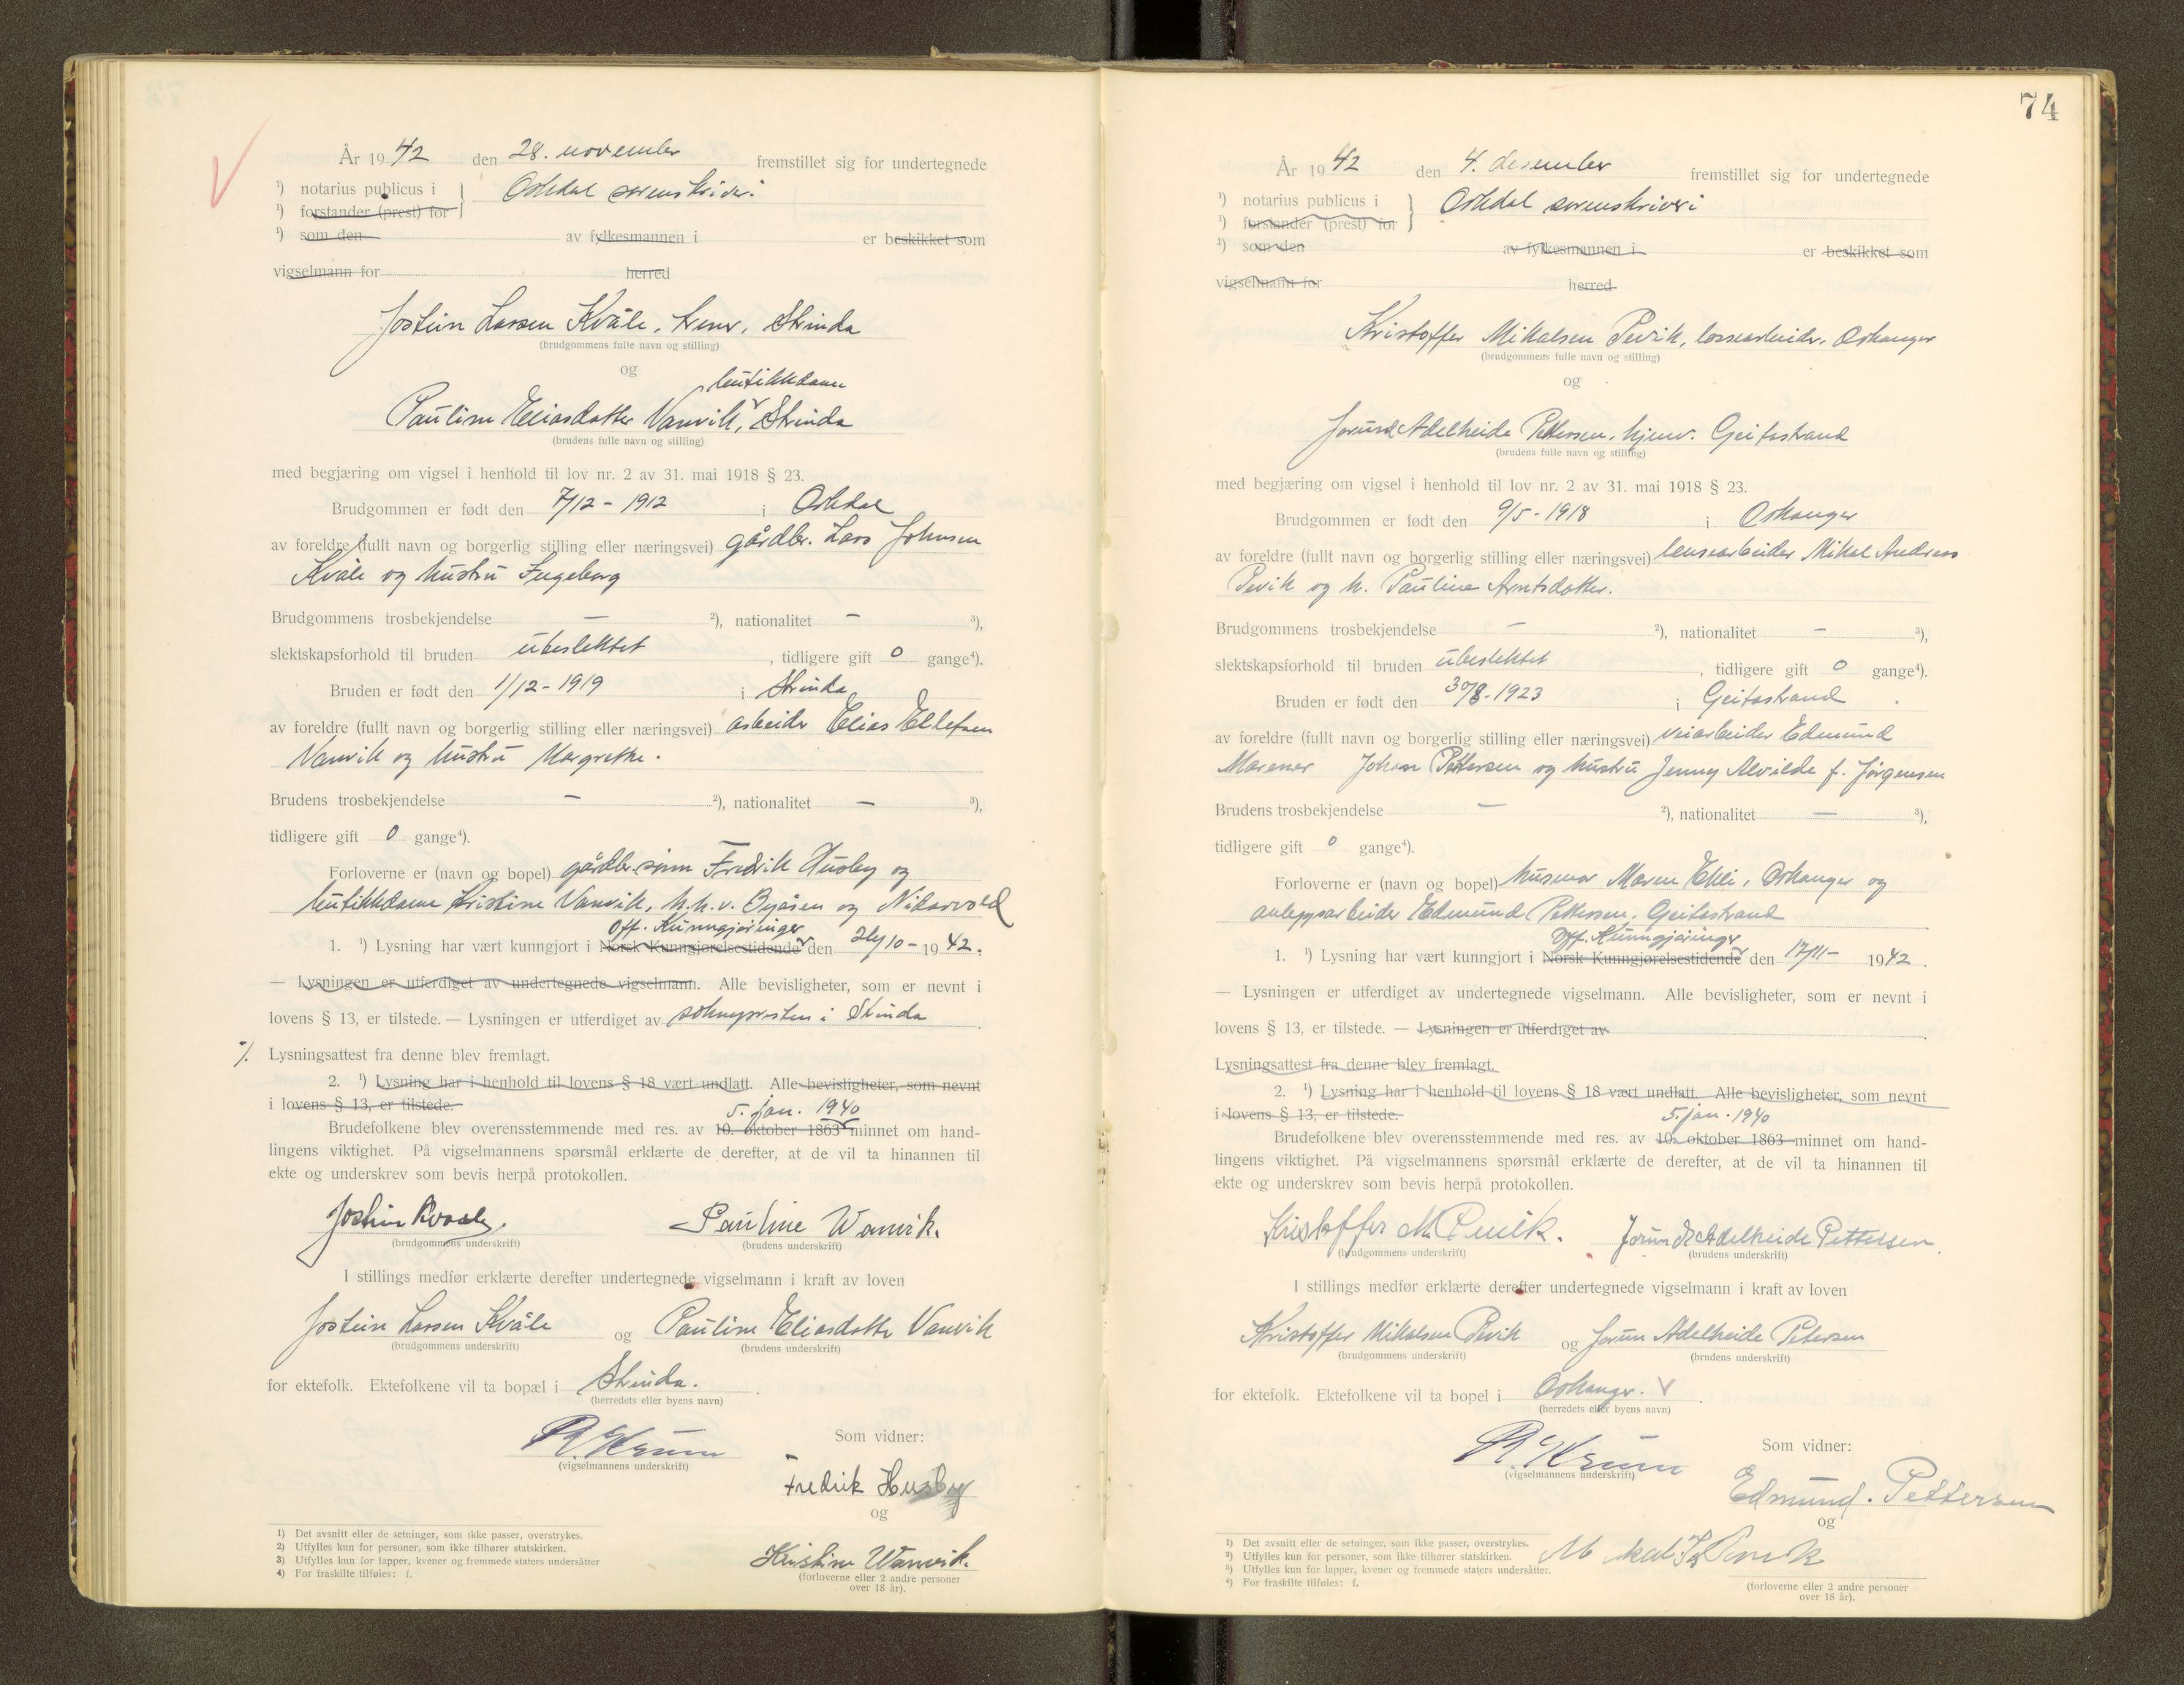 År 1942 den 28. november fremstillet sig for undertegnede
¹) notarius publicus i } Orkdal sorenskriveri
¹) forstander (prest) for
¹) som den av fylkesmannen i er beskikket som
vigselmann for herred
Jostein Larsen Kvåle, Strinda
(brudgommens fulle navn og stilling)
og
butikkdame
Pauline Eliasdatter Vanvik, Strinda
(brudens fulle navn og stilling)
med begjæring om vigsel i henhold til lov nr. 2 av 31. mai 1918 § 23.
Brudgommen er født den 7/12 - 1912 i Orkdal
av foreldre (fullt navn og borgerlig stilling eller næringsvei) gårdbr. Lars Johnsen
Kvåle og hustru Ingeborg
Brudgommens trosbekjendelse — ²), nationalitet — ³),
slektskapsforhold til bruden ubeslektet, tidligere gift 0 gange⁴).
Bruden er født den 1/12 - 1919 i Strinda
av foreldre (fullt navn og borgerlig stilling eller næringsvei) arbeider Elias Ellefsen
Vanvik og hustru Margrethe.
Brudens trosbekjendelse — ²), nationalitet — ³),
tidligere gift 0 gange⁴).
Forloverne er (navn og bopel) gårdbr.sønn Fredrik Husby og
butikkdame Kristine Vanvik, h.h.v. Byåsen og Nidarvold
Off. Kunngjøringer
1. ¹) Lysning har vært kunngjort i Norsk Kunngjørelsestidende den 24/10 - 1942.
— Lysningen er utferdiget av undertegnede vigselmann. Alle bevisligheter, som er nevnt i
lovens § 13, er tilstede. — Lysningen er utferdiget av sokneprsten i Strinda.
Lysningsattest fra denne blev fremlagt.
2. ¹) Lysning har i henhold til lovens § 18 vært undlatt. Alle bevisligheter, som nevnt
i lovens § 13, er tilstede.
5. jan. 1940
Brudefolkene blev overensstemmende med res. av 10. oktober 1863 minnet om hand-
lingens viktighet. På vigselmannens spørsmål erklærte de derefter, at de vil ta hinannen til
ekte og underskrev som bevis herpå protokollen.
Jostein Kvaale. Pauline Wanvik.
(brudgommens underskrift) (brudens underskrift)
I stillings medfør erklærte derefter undertegnede vigselmann i kraft av loven
Jostein Larsen Kvåle og Pauline Eliasdatter Vanvik
(brudgommens underskrift) (brudens underskrift)
for ektefolk. Ektefolkene vil ta bopæl i Strinda.
(herredets eller byens navn)
(vigselmannens underskrift)
Som vidner:
Fredrik Husby
og
Kristine Wanvik.
(forloverne eller 2 andre personer
over 18 år).
1) Det avsnitt eller de setninger, som ikke passer, overstrykes.
2) Utfylles kun for personer, som ikke tilhører statskirken.
3) Utfylles kun for lapper, kvener og fremmede staters undersåtter
4) For fraskilte tilføies: f.
74
År 1942 den 4. desember fremstillet sig for undertegnede
¹) notarius publicus i } Orkdal sorenskriveri
¹) forstander (prest) for
¹) som den av fylkesmannen i er beskikket som
vigselmann for herred
Kristoffer Mikalsen Pevik, lossearbeider, Orkanger
(brudgommens fulle navn og stilling)
og
Jorund Adelheide Pettersen, hjemv. Geitastrand
(brudens fulle navn og stilling)
med begjæring om vigsel i henhold til lov nr. 2 av 31. mai 1918 § 23.
Brudgommen er født den 9/5 - 1918 i Orkanger
av foreldre (fullt navn og borgerlig stilling eller næringsvei) lensearbeider Mikal Andreas
Pevik og h. Pauline Arntsdatter.
Brudgommens trosbekjendelse — ²), nationalitet — ³),
slektskapsforhold til bruden ubeslektet, tidligere gift 0 gange⁴).
Bruden er født den 30/8 - 1923 i Geitastrand.
av foreldre (fullt navn og borgerlig stilling eller næringsvei) veiarbeider Edmund
Marener Johan Pettersen og hustru Jenny Alvilde f. Jørgensen
Brudens trosbekjendelse — ²), nationalitet — ³),
tidligere gift 0 gange⁴).
Forloverne er (navn og bopel) husmor Maren Elli, Orkanger og
anleggsarbeider Edmund Pettersen, Geitastrand
Off. Kunngjøringer
1. ¹) Lysning har vært kunngjort i Norsk Kunngjørelsestidende den 17/11 - 1942.
— Lysningen er utferdiget av undertegnede vigselmann. Alle bevisligheter, som er nevnt i
lovens § 13, er tilstede. — Lysningen er utferdiget av .
Lysningsattest fra denne blev fremlagt.
2. ¹) Lysning har i henhold til lovens § 18 vært undlatt. Alle bevisligheter, som nevnt
i lovens § 13, er tilstede.
5. jan. 1940
Brudefolkene blev overensstemmende med res. av 10. oktober 1863 minnet om hand-
lingens viktighet. På vigselmannens spørsmål erklærte de derefter, at de vil ta hinannen til
ekte og underskrev som bevis herpå protokollen.
Kristoffer M. Pevik. Jorund Adelheide Pettersen.
(brudgommens underskrift) (brudens underskrift)
I stillings medfør erklærte derefter undertegnede vigselmann i kraft av loven
Kristoffer Mikalsen Pevik og Jorun Adelheide Petersen
(brudgommens underskrift) (brudens underskrift)
for ektefolk. Ektefolkene vil ta bopel i Orkanger.
(herredets eller byens navn)
(vigselmannens underskrift)
Som vidner:
Edmund. Pettersen
og
(forloverne eller 2 andre personer
over 18 år).
1) Det avsnitt eller de setninger, som ikke passer, overstrykes.
2) Utfylles kun for personer, som ikke tilhører statskirken.
3) Utfylles kun for lapper, kvener og fremmede staters undersåtter.
4) For fraskilte tilføies: f.